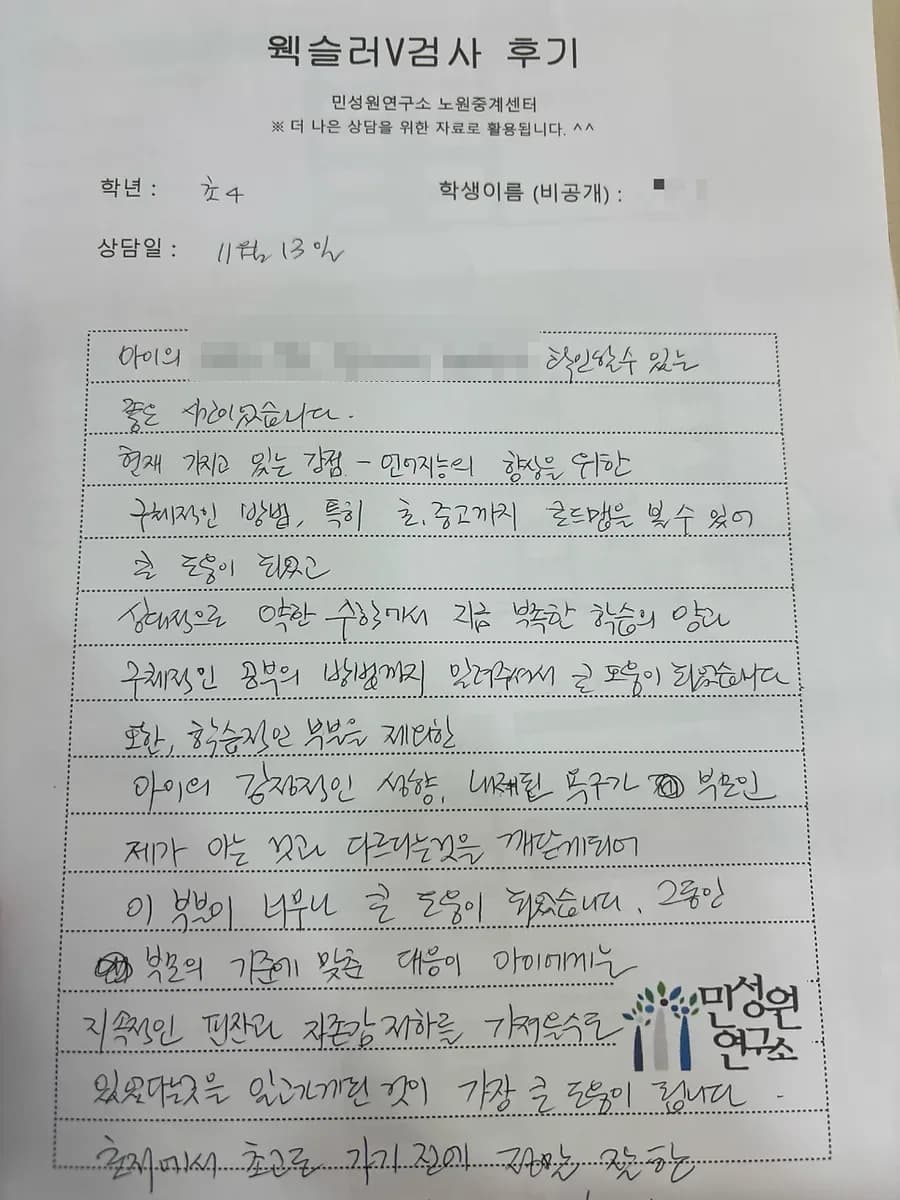 웩슬러V검사 후기
민성원연구소 노원중계센터
※ 더 나은 상담을 위한 자료로 활용됩니다. ^^
학년 : 초4 학생이름 (비공개) :
상담일 : 11월 13일
아이의 확인할수 있는
좋은 시간이었습니다.
현재 가지고 있는 강점 - 언어지능의 향상을 위한
구체적인 방법, 특히 초.중고까지 로드맵을 볼 수 있어
큰 도움이 되었고
상대적으로 약한 수학에서 지금 부족한 학습의 양과
구체적인 공부의 방법까지 알려주셔서 큰 도움이 되었습니다
또한, 학습적인 부분을 제외한
아이의 감정적인 성향, 내재된 욕구가 부모인
제가 아는 것과 다르다는것을 깨닫게되어
이 부분이 너무나 큰 도움이 되었습니다. 그동안
부모의 기준에 맞춘 대응이 아이에게는
지속적인 핀잔과 자존감 저하를 가져올수도
있었다는것을 알고가게된 것이 가장 큰 도움이 됩니다.
현재에서 가기 전에
민성원
연구소